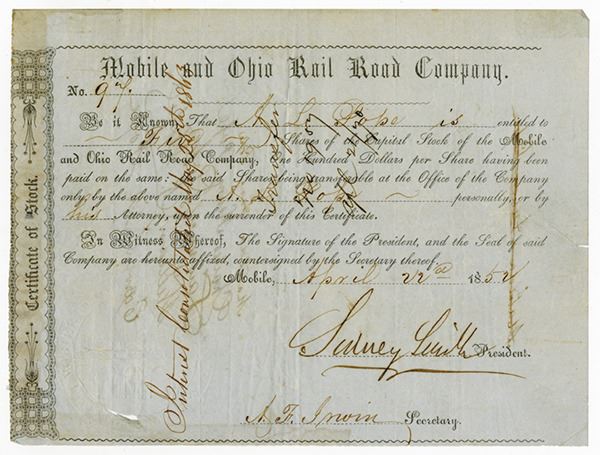 Mobile and Ohio Rail Road Company.
No. 97.
Be it Known, That A. L. Pope is entitled to
Five Shares of the Capital Stock of the Mobile
and Ohio Rail Road Company, One Hundred Dollars per Share having been
paid on the same: the said Shares being transferable at the Office of the Company
only, by the above named A. personally, or by
his Attorney, upon the surrender of this Certificate.
In Witness Whereof, The Signature of the President, and the Seal of said
Company are hereunto affixed, countersigned by the Secretary thereof.
Mobile, April 22d 185
Sidney Smith President.
A. F. Irwin Secretary.
Certificate of Stock.
Interest
Transfer